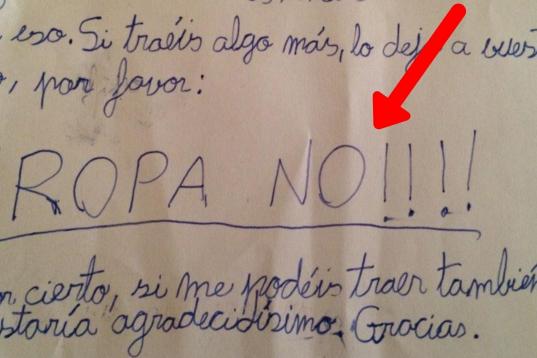 eso. Si traéis algo más, lo dejo a
por favor:
ROPA NO!!!!
cierto, si me podéis traer también
agradecidísimo. Gracias.